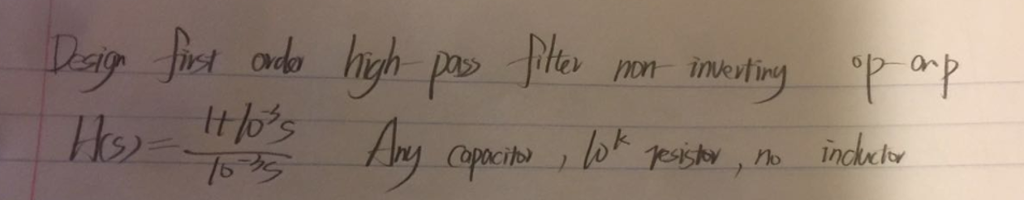 Design first order high-pass filter non-inverting op-amp
H(s) = (1+10⁻³s)/(10⁻³s) Any capacitor, 10k resistor, no inductor